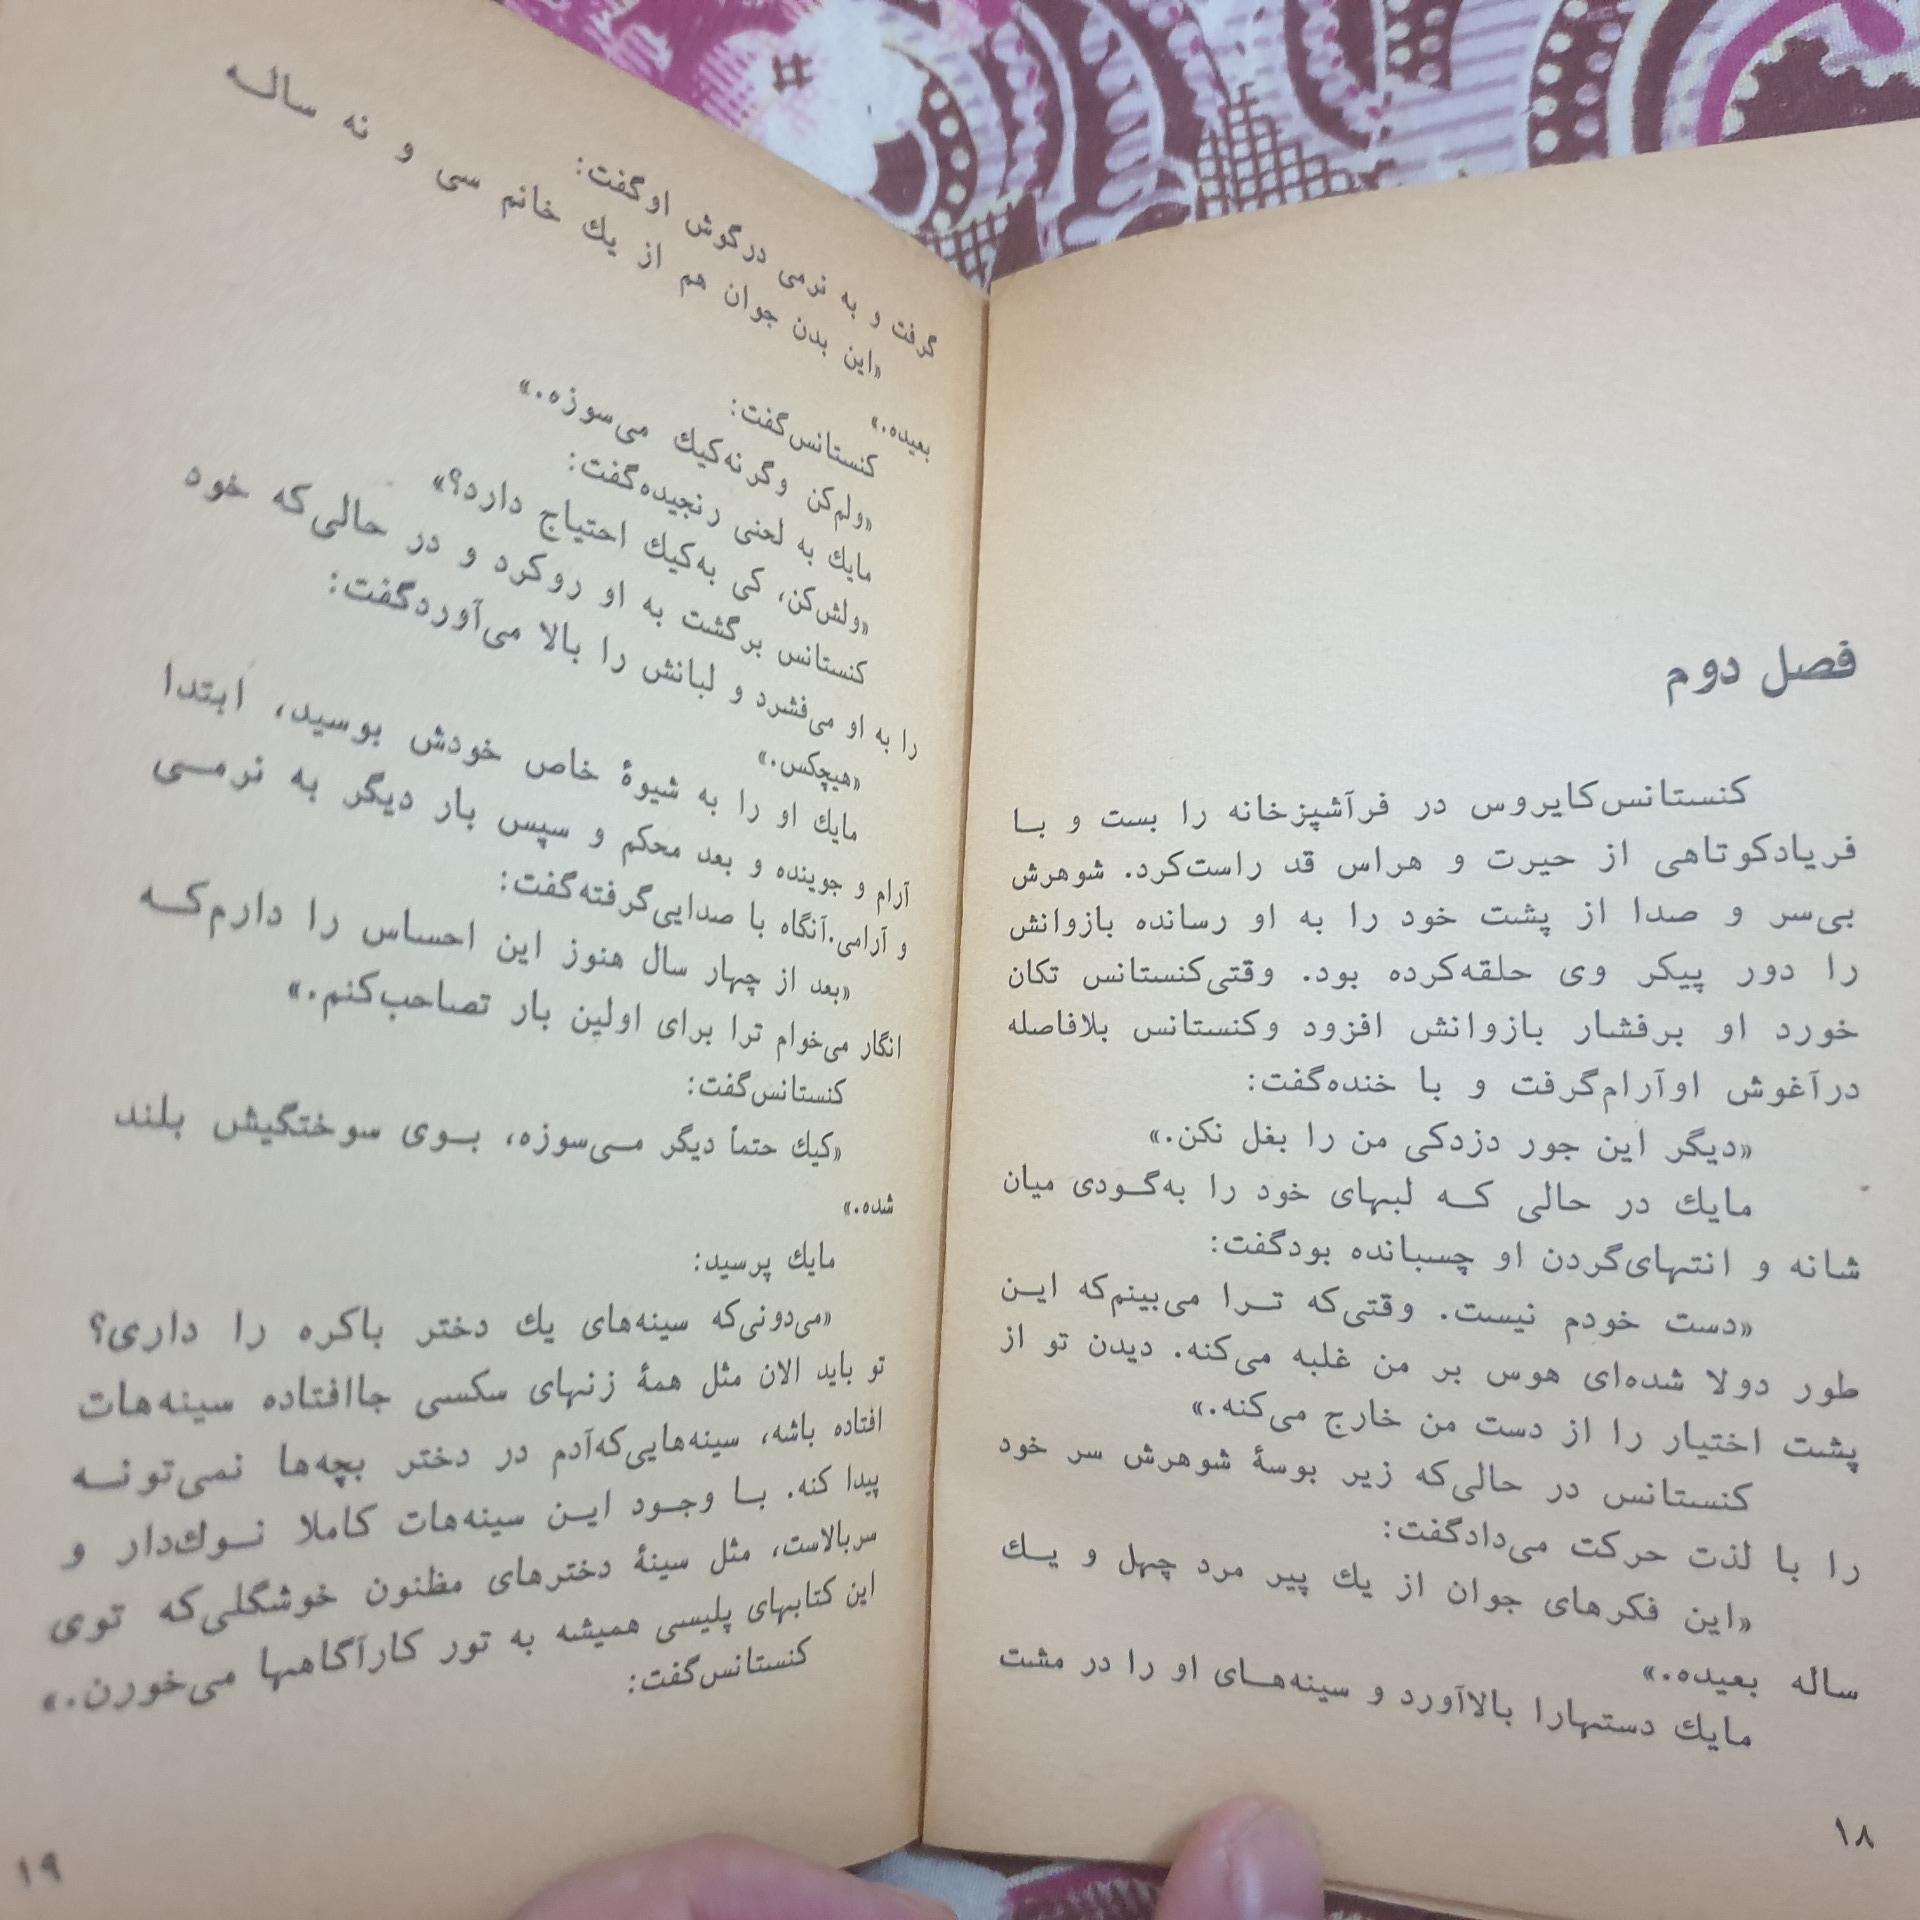 فصل دوم
کنستانس‌کایروس در فرآشپزخانه را بست و بـا
فریادکوتاهی از حیرت و هراس قد راست‌کرد. شوهرش
بی‌سر و صدا از پشت خود را به او رسانده بازوانش
را دور پیکر وی حلقه‌کرده بود. وقتی‌کنستانس تکان
خورد او برفشار بازوانش افزود وکنستانس بلافاصله
درآغوش اوآرام‌گرفت و با خنده‌گفت:
«دیگر این جور دزدکی من را بغل نکن.»
مایك در حالی کـه لبهای خود را به‌گـودی میان
شانه و انتهای‌گردن او چسبانده بودگفت:
«دست خودم نیست. وقتی‌که تـرا می‌بینم‌که ایـن
طور دولا شده‌ای هوس بر من غلبه می‌کنه. دیدن تو از
پشت اختیار را از دست من خارج می‌کنه.»
کنستانس در حالی‌که زیر بوسهٔ شوهرش سر خود
را با لذت حرکت می‌دادگفت:
«این فکرهای جوان از یك پیر مرد چهل و یـك
ساله بعیده.»
مایك دستهارا بالاآورد و سینه‌هـای او را در مشت
۱۸
گرفت و به نرمی درگوش اوگفت:
«این بدن جوان هم از یك خانم سی و نه سالـه
بعیده.»
کنستانس‌گفت:
«ولم‌کن وگرنه‌کیك می‌سوزه.»
مایك به لحنی رنجیده‌گفت:
«ولش‌کن، کی به‌کیك احتیاج دارد؟»
کنستانس برگشت به او روکرد و در حالی‌که خود
را به او می‌فشرد و لبانش را بالا می‌آوردگفت:
«هیچکس.»
مایك او را به شیوهٔ خاص خودش بوسید، ابتدا
آرام و جوینده و بعد محکم و سپس بار دیگر به نرمـی
و آرامی.آنگاه با صدایی‌گرفته‌گفت:
«بعد از چهار سال هنوز این احساس را دارم‌کـه
انگار می‌خوام ترا برای اولین بار تصاحب‌کنم.»
کنستانس‌گفت:
«کیك حتماً دیگر مـی‌سوزه، بـوی سوختگیش بلند
شده.»
مایك پرسید:
«می‌دونی‌که سینه‌های یك دختر باکره را داری؟
تو باید الان مثل همهٔ زنهای سکسی جاافتاده سینه‌هات
افتاده باشه، سینه‌هایی‌که‌آدم در دختر بچه‌ها نمی‌تونـه
پیدا کنه. بـا وجـود ایـن سینه‌هات کاملا نـوك‌دار و
سربالاست، مثل سینهٔ دخترهای مظنون خوشگلی‌که توی
این کتابهای پلیسی همیشه به تور کارآگاهها می‌خورن.»
کنستانس‌گفت:
۱۹